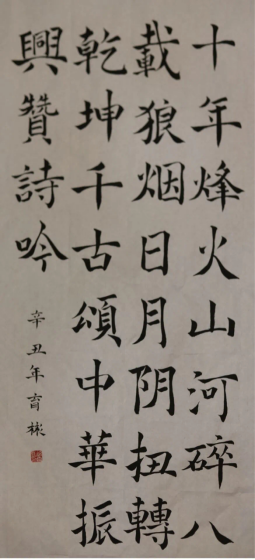 十年烽火山河碎八
載狼烟日月阴扭轉
乾坤千古頌中華振
興贊詩吟
辛丑年育梂